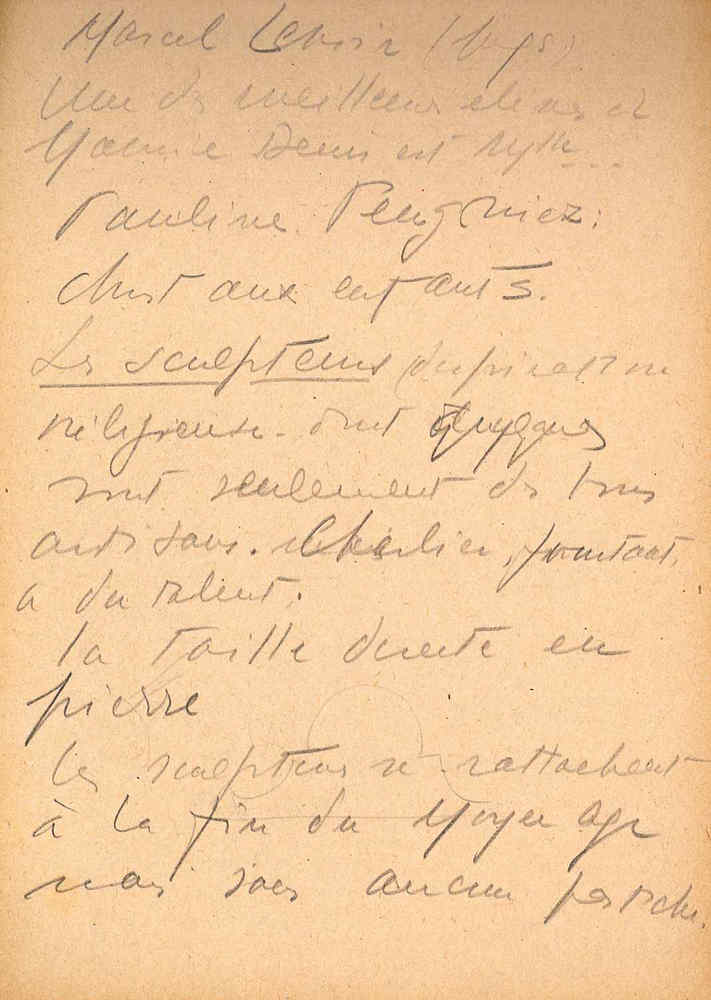 Marcel Lenoir
Un des meilleurs élèves de
Maurice Denis est
Pauline Peugniez.
Christ aux enfants.
Les sculpteurs d'inspiration
religieuse - dont quelques
sont seulement de bons
artisans. Charlier, pourtant,
a du talent.
la taille directe en
pierre
les sculpteurs se rattachent
à la fin du Moyen age
mais sans aucun pastiche.